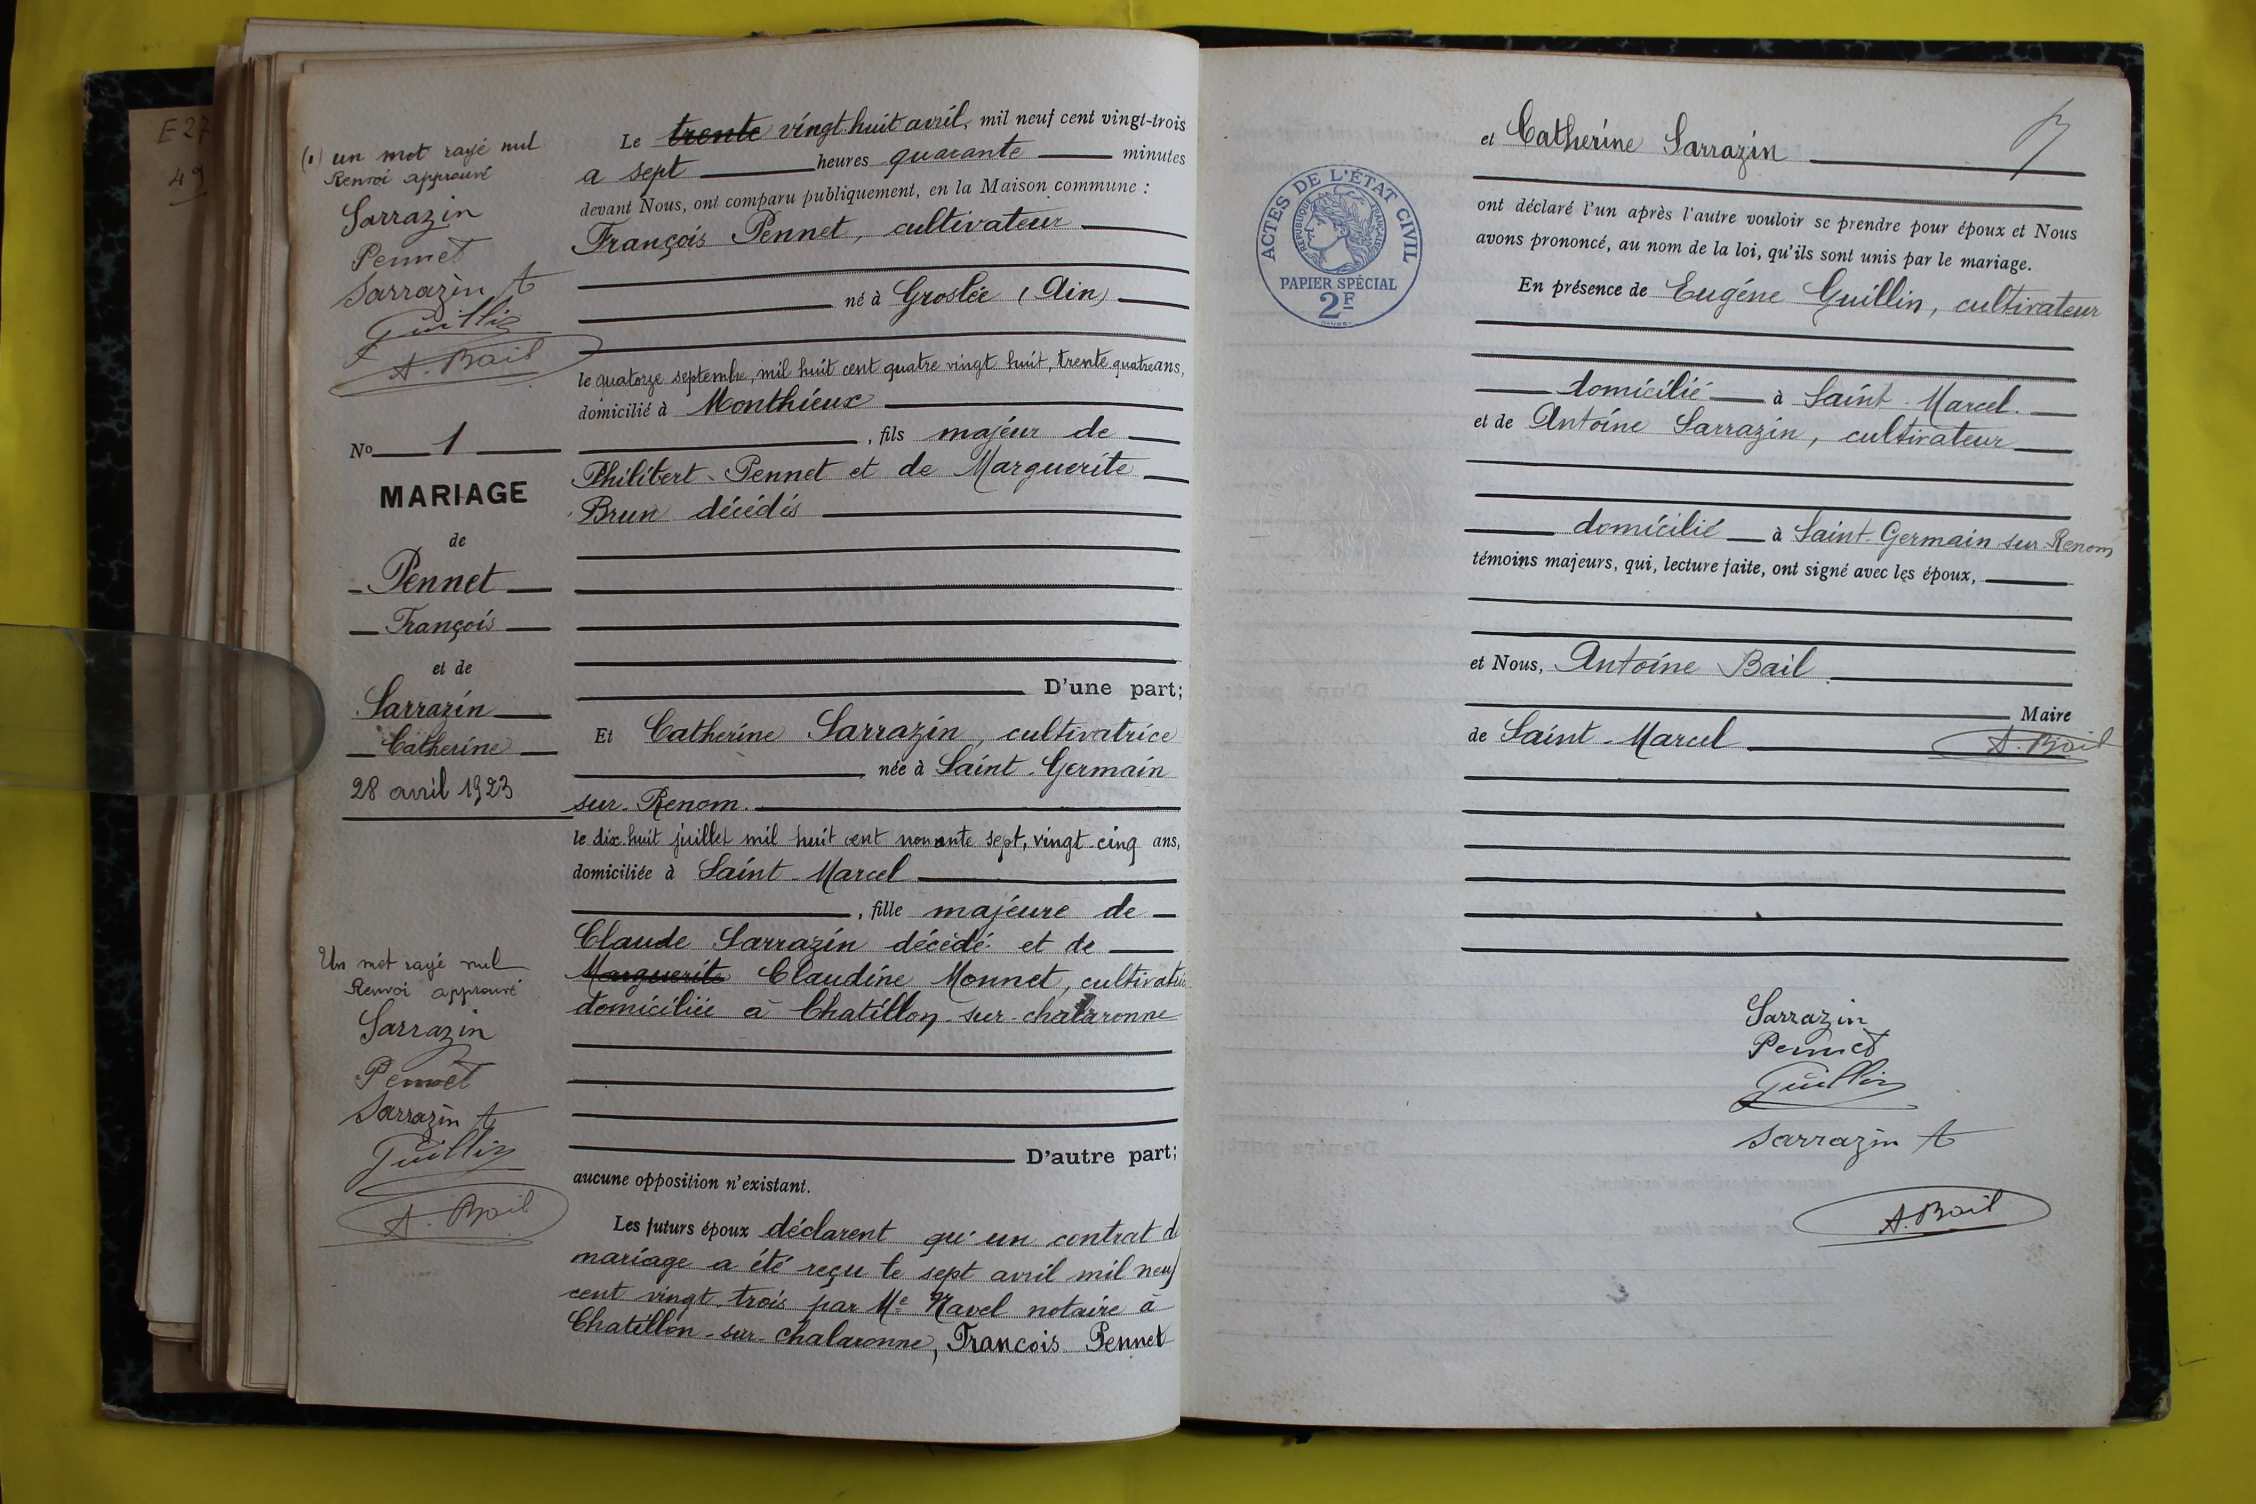 E 27
49
(1) un mot rayé nul
Renvoi approuvé
Sarrazin
Pennet
Sarrazin A
Guillin
A. Bail
No 1
MARIAGE
de
Pennet
François
et de
Sarrazin
Catherine
28 avril 1923
Un mot rayé nul
Renvoi approuvé
Sarrazin
Pennet
Sarrazin A
Guillin
A. Bail
Le trente vingt huit avril, mil neuf cent vingt-trois
a sept heures quarante minutes
devant Nous, ont comparu publiquement, en la Maison commune :
François Pennet, cultivateur
né à Groslée (Ain)
le quatorze septembre, mil huit cent quatre vingt huit, trente quatre ans,
domicilié à Monthieux
, fils majeur de
Philibert Pennet et de Marguerite
Brun décédés
D'une part;
Et Catherine Sarrazin, cultivatrice
née à Saint-Germain
sur-Renom.
le dix huit juillet mil huit cent nonante sept, vingt-cinq ans,
domiciliée à Saint-Marcel
, fille majeure de
Claude Sarrazin décédé et de
Marguerite Claudine Monnet, cultivatrice
domiciliée à Chatillon-sur-chalaronne
D'autre part;
aucune opposition n'existant.
Les futurs époux déclarent qu'un contrat de
mariage a été reçu le sept avril mil neuf
cent vingt-trois par Me Navel notaire à
Chatillon-sur-chalaronne, Francois Pennet
et Catherine Sarrazin
ACTES DE L'ÉTAT CIVIL
RÉPUBLIQUE FRANÇAISE
PAPIER SPÉCIAL
2F
ont déclaré l'un après l'autre vouloir se prendre pour époux et Nous
avons prononcé, au nom de la loi, qu'ils sont unis par le mariage.
En présence de Eugéne Guillin, cultivateur
domicilié à Saint-Marcel.
et de Antoine Sarrazin, cultivateur
domicilié à Saint-Germain sur-Renom
témoins majeurs, qui, lecture faite, ont signé avec les époux,
et Nous, Antoine Bail
Maire
de Saint-Marcel
A. Bail
Sarrazin
Pennet
Guillin
Sarrazin A
A. Bail